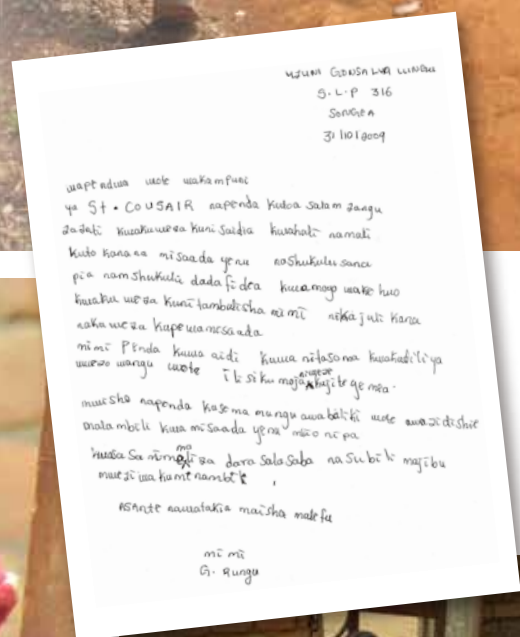 GONSALVA
S.L.P 316
SONGEA
31/10/2009
wapendwa wote wakampuni
ya St. COUSAIR napenda kutoa salam zangu
zadati kwakuweza kuni saidia kwahali namali
kuto kana na misaada yenu nashukulu sana
pia nam shukulu dada fidea kwa moyo wake huo
kwaku weza kuni tambulisha mimi nika juli kana
naka weza kupewa msaada
nimi Penda kuwa aidi kuwa nitasoma kwakadili ya
uwezo wangu wote ili siku moja niweze kujitegemea.
mwisho napenda kasema mungu awabaliki wote awazidishie
malambili kwa misaada yenu mio nipa
kwasasa nimemaliza dara salasaba na subili majibu
mwezi wa kumi nambili
ASante nawatakia maisha malefu
mimi
G. Rungu